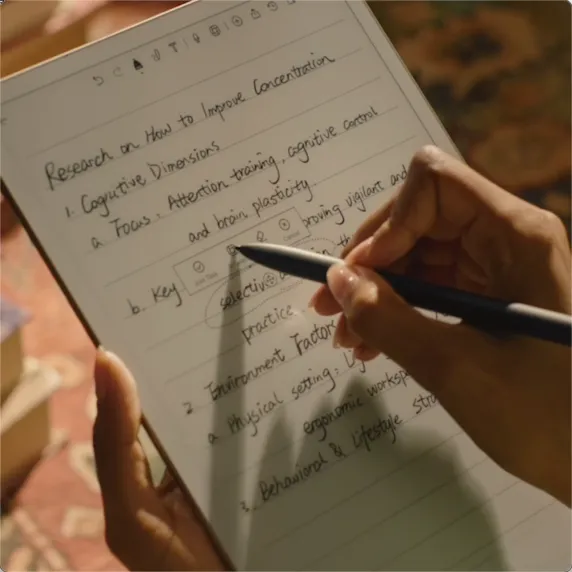 Research on How to Improve Concentration
1. Cognitive Dimensions
a. Focus: Attention training, cognitive control
and brain plasticity.
b. Key proving vigilant and
selective
practice
2. Environment Factors
a Physical setting:
ergonomic
3. Behavioral & Lifestyle